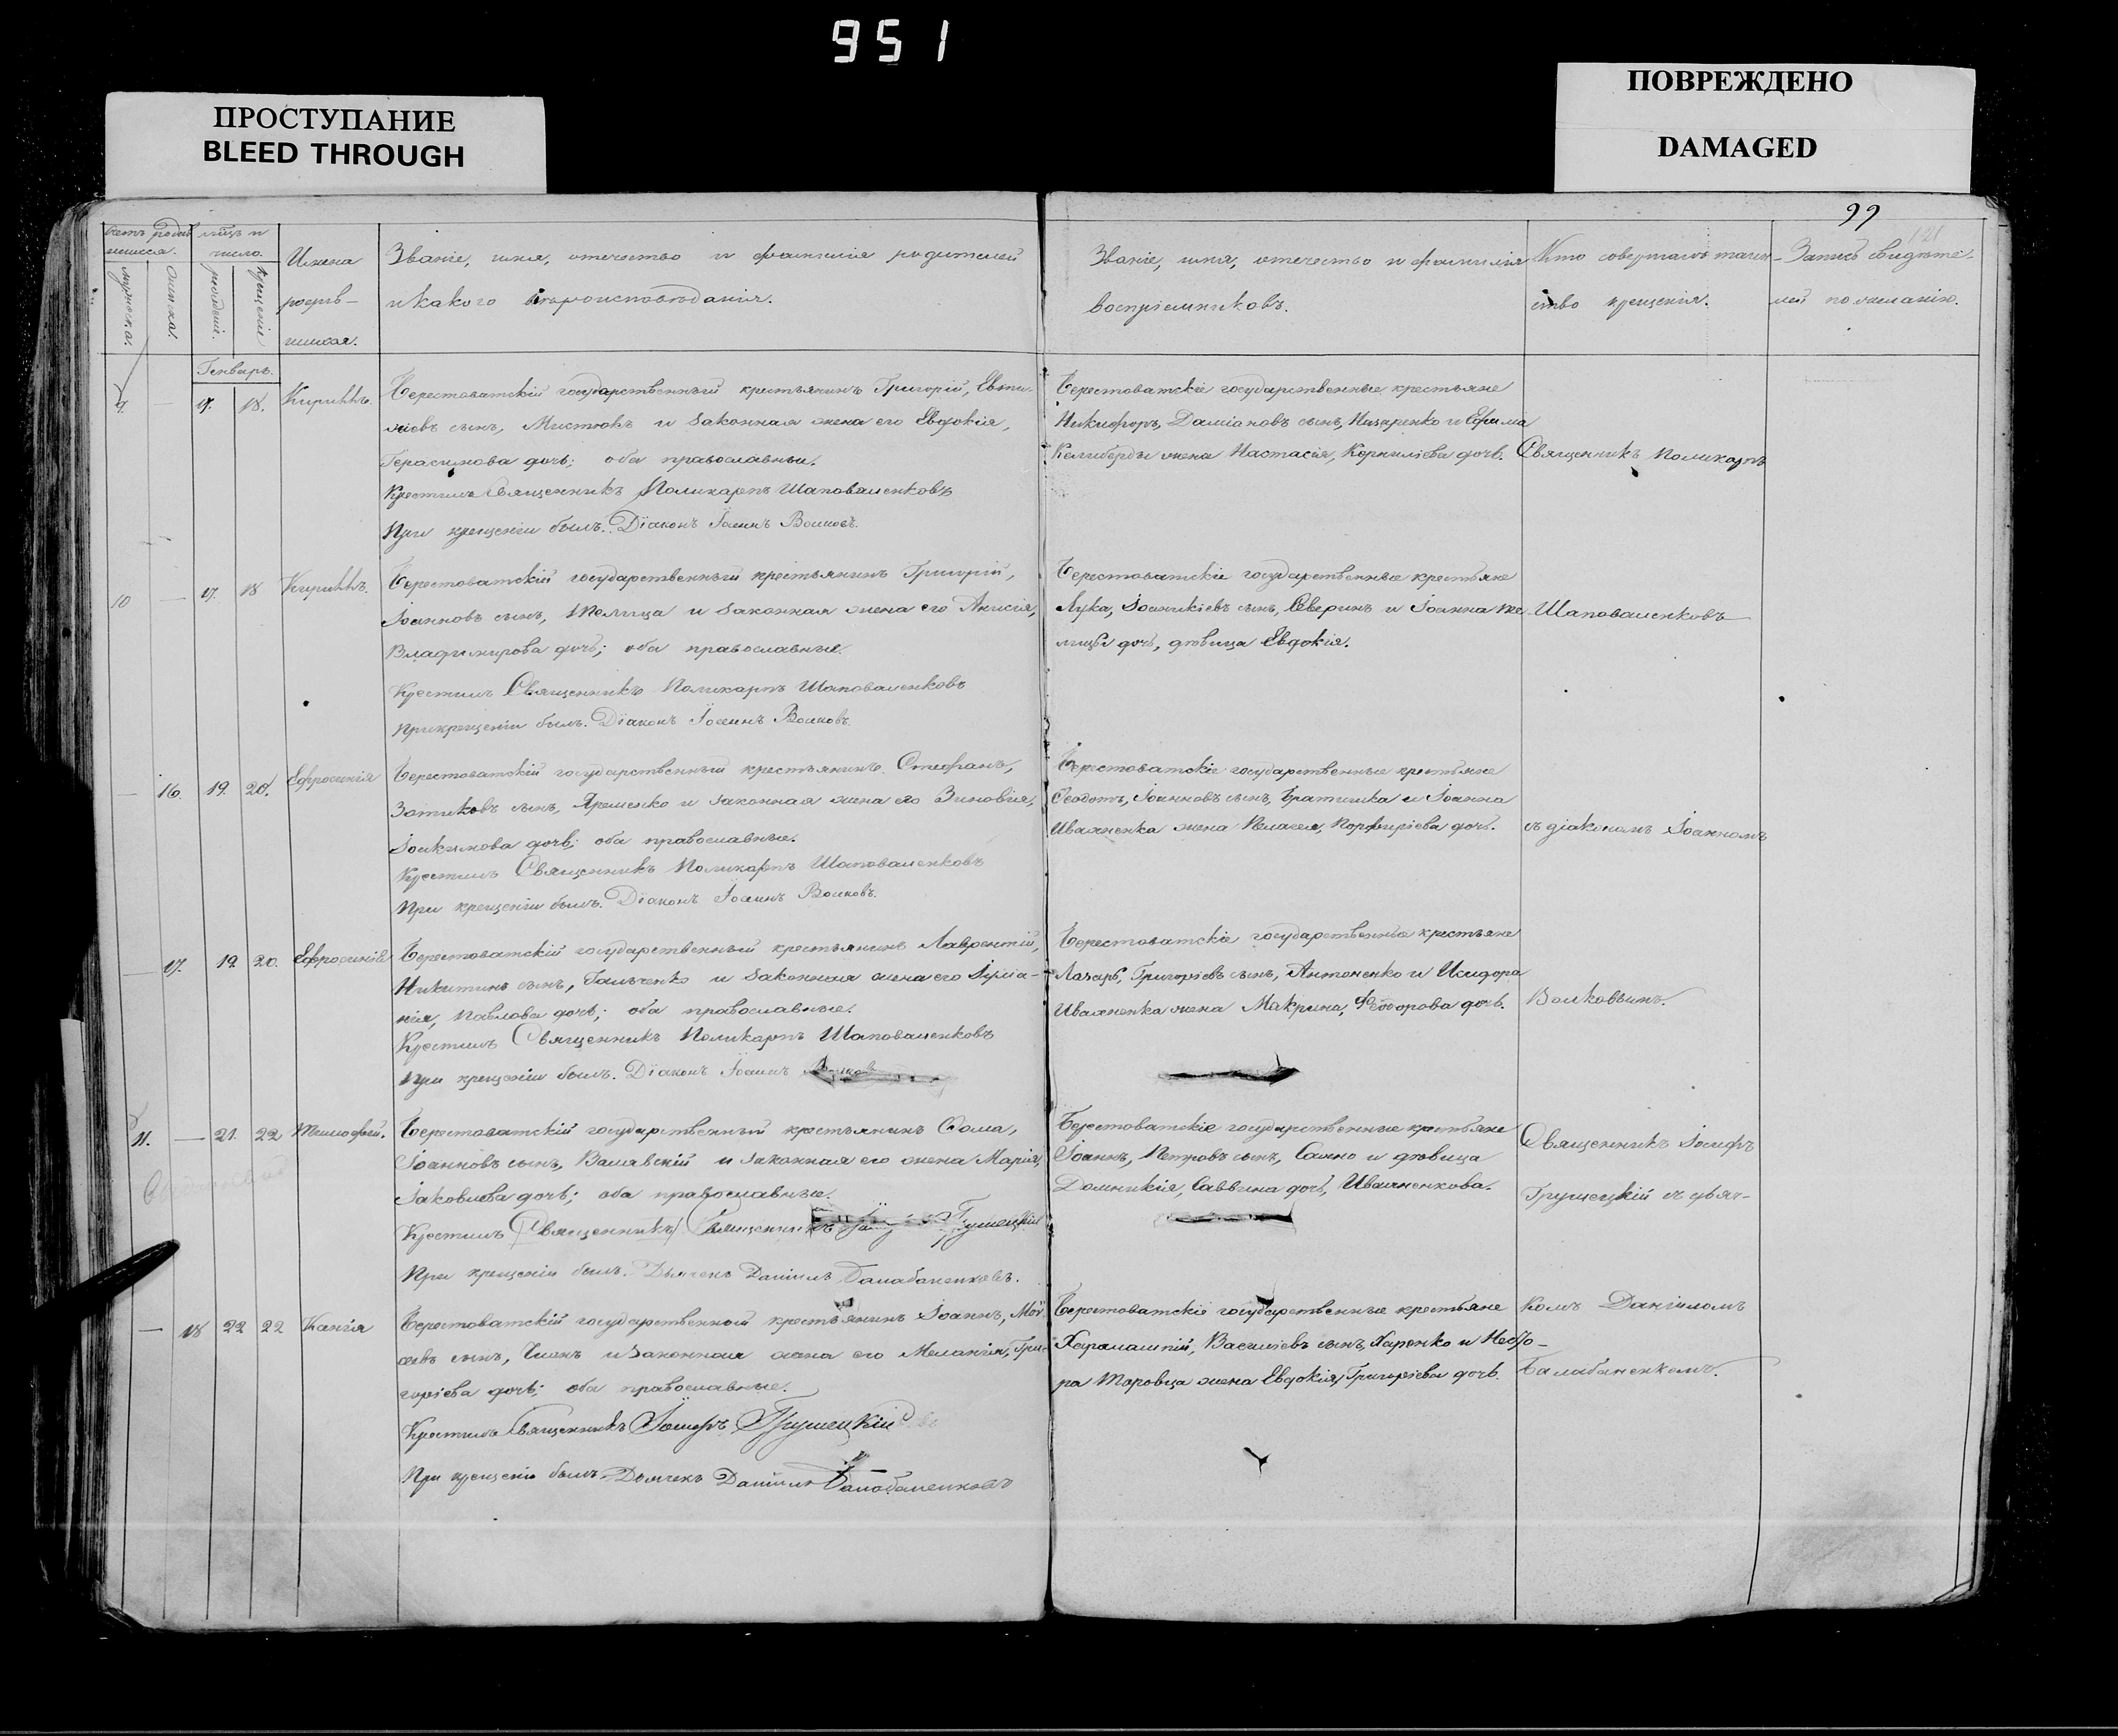 951
ПРОСТУПАНИЕ
BLEED THROUGH
ПОВРЕЖДЕНО
DAMAGED
99
121
мѣсяцъ и
число.
мужеска.
женска.
рожденiе.
крещенiе
Имена
родив-
шихся.
Званiе, имя, отечество и фамилiя родителей
и какого вѣроисповѣданiя.
Званiе, имя, отечество и фамилiя
воспрiемниковъ.
Кто совершалъ таин-
ство крещенiя.
Запись свидѣте-
лей по желанiю.
Генварь.
9. — 17. 18. Кириллъ.
Берестоватскiй государственный крестьянинъ Григорiй,
сынъ, и законная жена его Евдокiя,
Герасимова дочь; оба православны.
Крестилъ Священникъ Поликарпъ Шаповаленковъ
При крещенiи былъ. Дiаконъ Iоаннъ Волковъ.
Берестоватскiе государственные крестьяне
Никифоръ, Дамiановъ сынъ, Назаренко и Ефима
Келиберды жена Настасiя, Корнилiева дочь.
Священникъ Поликарпъ
10 — 17. 18 Кириллъ.
Берестоватскiй государственный крестьянинъ Григорiй,
Iоанновъ сынъ, Телица и законная жена его Анисiя,
Владимирова дочь; оба православные.
Крестилъ Священникъ Поликарпъ Шаповаленковъ
При крещенiи былъ. Дiаконъ Iоаннъ Волковъ.
Берестоватскiе государственные крестьяне
Лука, Iоанникiевъ сынъ, Северинъ и Iоанна Те-
лицы дочь, дѣвица Евдокiя.
Шаповаленковъ
— 16. 19. 20. Ефросинiя
Берестоватскiй государственный крестьянинъ Стефанъ,
Зотиковъ сынъ, Яременко и законная жена его Зиновiя,
Iоакимова дочь; оба православные.
Крестилъ Священникъ Поликарпъ Шаповаленковъ
При крещенiи былъ. Дiаконъ Iоаннъ Волковъ.
Берестоватскiе государственные крестьяне
Феодотъ, Iоанновъ сынъ, Братишка и Iоанна
Иваненка жена Пелагея, Порфирiева дочь.
съ дiакономъ Iоанномъ
— 17. 19. 20. Ефросинiя
Берестоватскiй государственный крестьянинъ Лаврентiй,
Никитинъ сынъ, Гальченко и законная жена его Iулiа-
нiя, Павлова дочь; оба православные.
Крестилъ Священникъ Поликарпъ Шаповаленковъ
При крещенiи былъ. Дiаконъ Iоаннъ Волковъ
Берестоватскiе государственные крестьяне
Лазарь, Григорiевъ сынъ, Антоненко и Исидора
Иваненка жена Макрина, Феодорова дочь.
Волковымъ.
11. — 21. 22 Тимофей.
Берестоватскiй государственный крестьянинъ Фома,
Iоанновъ сынъ, Валявскiй и законная его жена Марiя,
Iаковлева дочь; оба православные.
Крестилъ (Священникъ) Священникъ Грушецкiй
При крещенiи былъ. Дьячекъ Данiилъ Балабаненковъ.
Берестоватскiе государственные крестьяне
Iоаннъ, Петровъ сынъ, Сахно и дѣвица
Домникiя, Саввина дочь, Иваненкова.
Священникъ Iосифъ
Грушецкiй съ дьяч-
— 18 22 22 Ксанфiя
Берестоватскiй государственный крестьянинъ Iоаннъ, Мои-
сеевъ сынъ, Члекъ и законная жена его Меланiя, Гри-
горiева дочь; оба православные.
Крестилъ Священникъ Iосифъ Грушецкiй
При крещенiи былъ. Дьячекъ Данiилъ Балабаненковъ
Берестоватскiе государственные крестьяне
Харалампiй, Василiевъ сынъ, Харенко и
жена Евдокiя, Григорiева дочь.
комъ Данiиломъ
Балабаненкомъ.